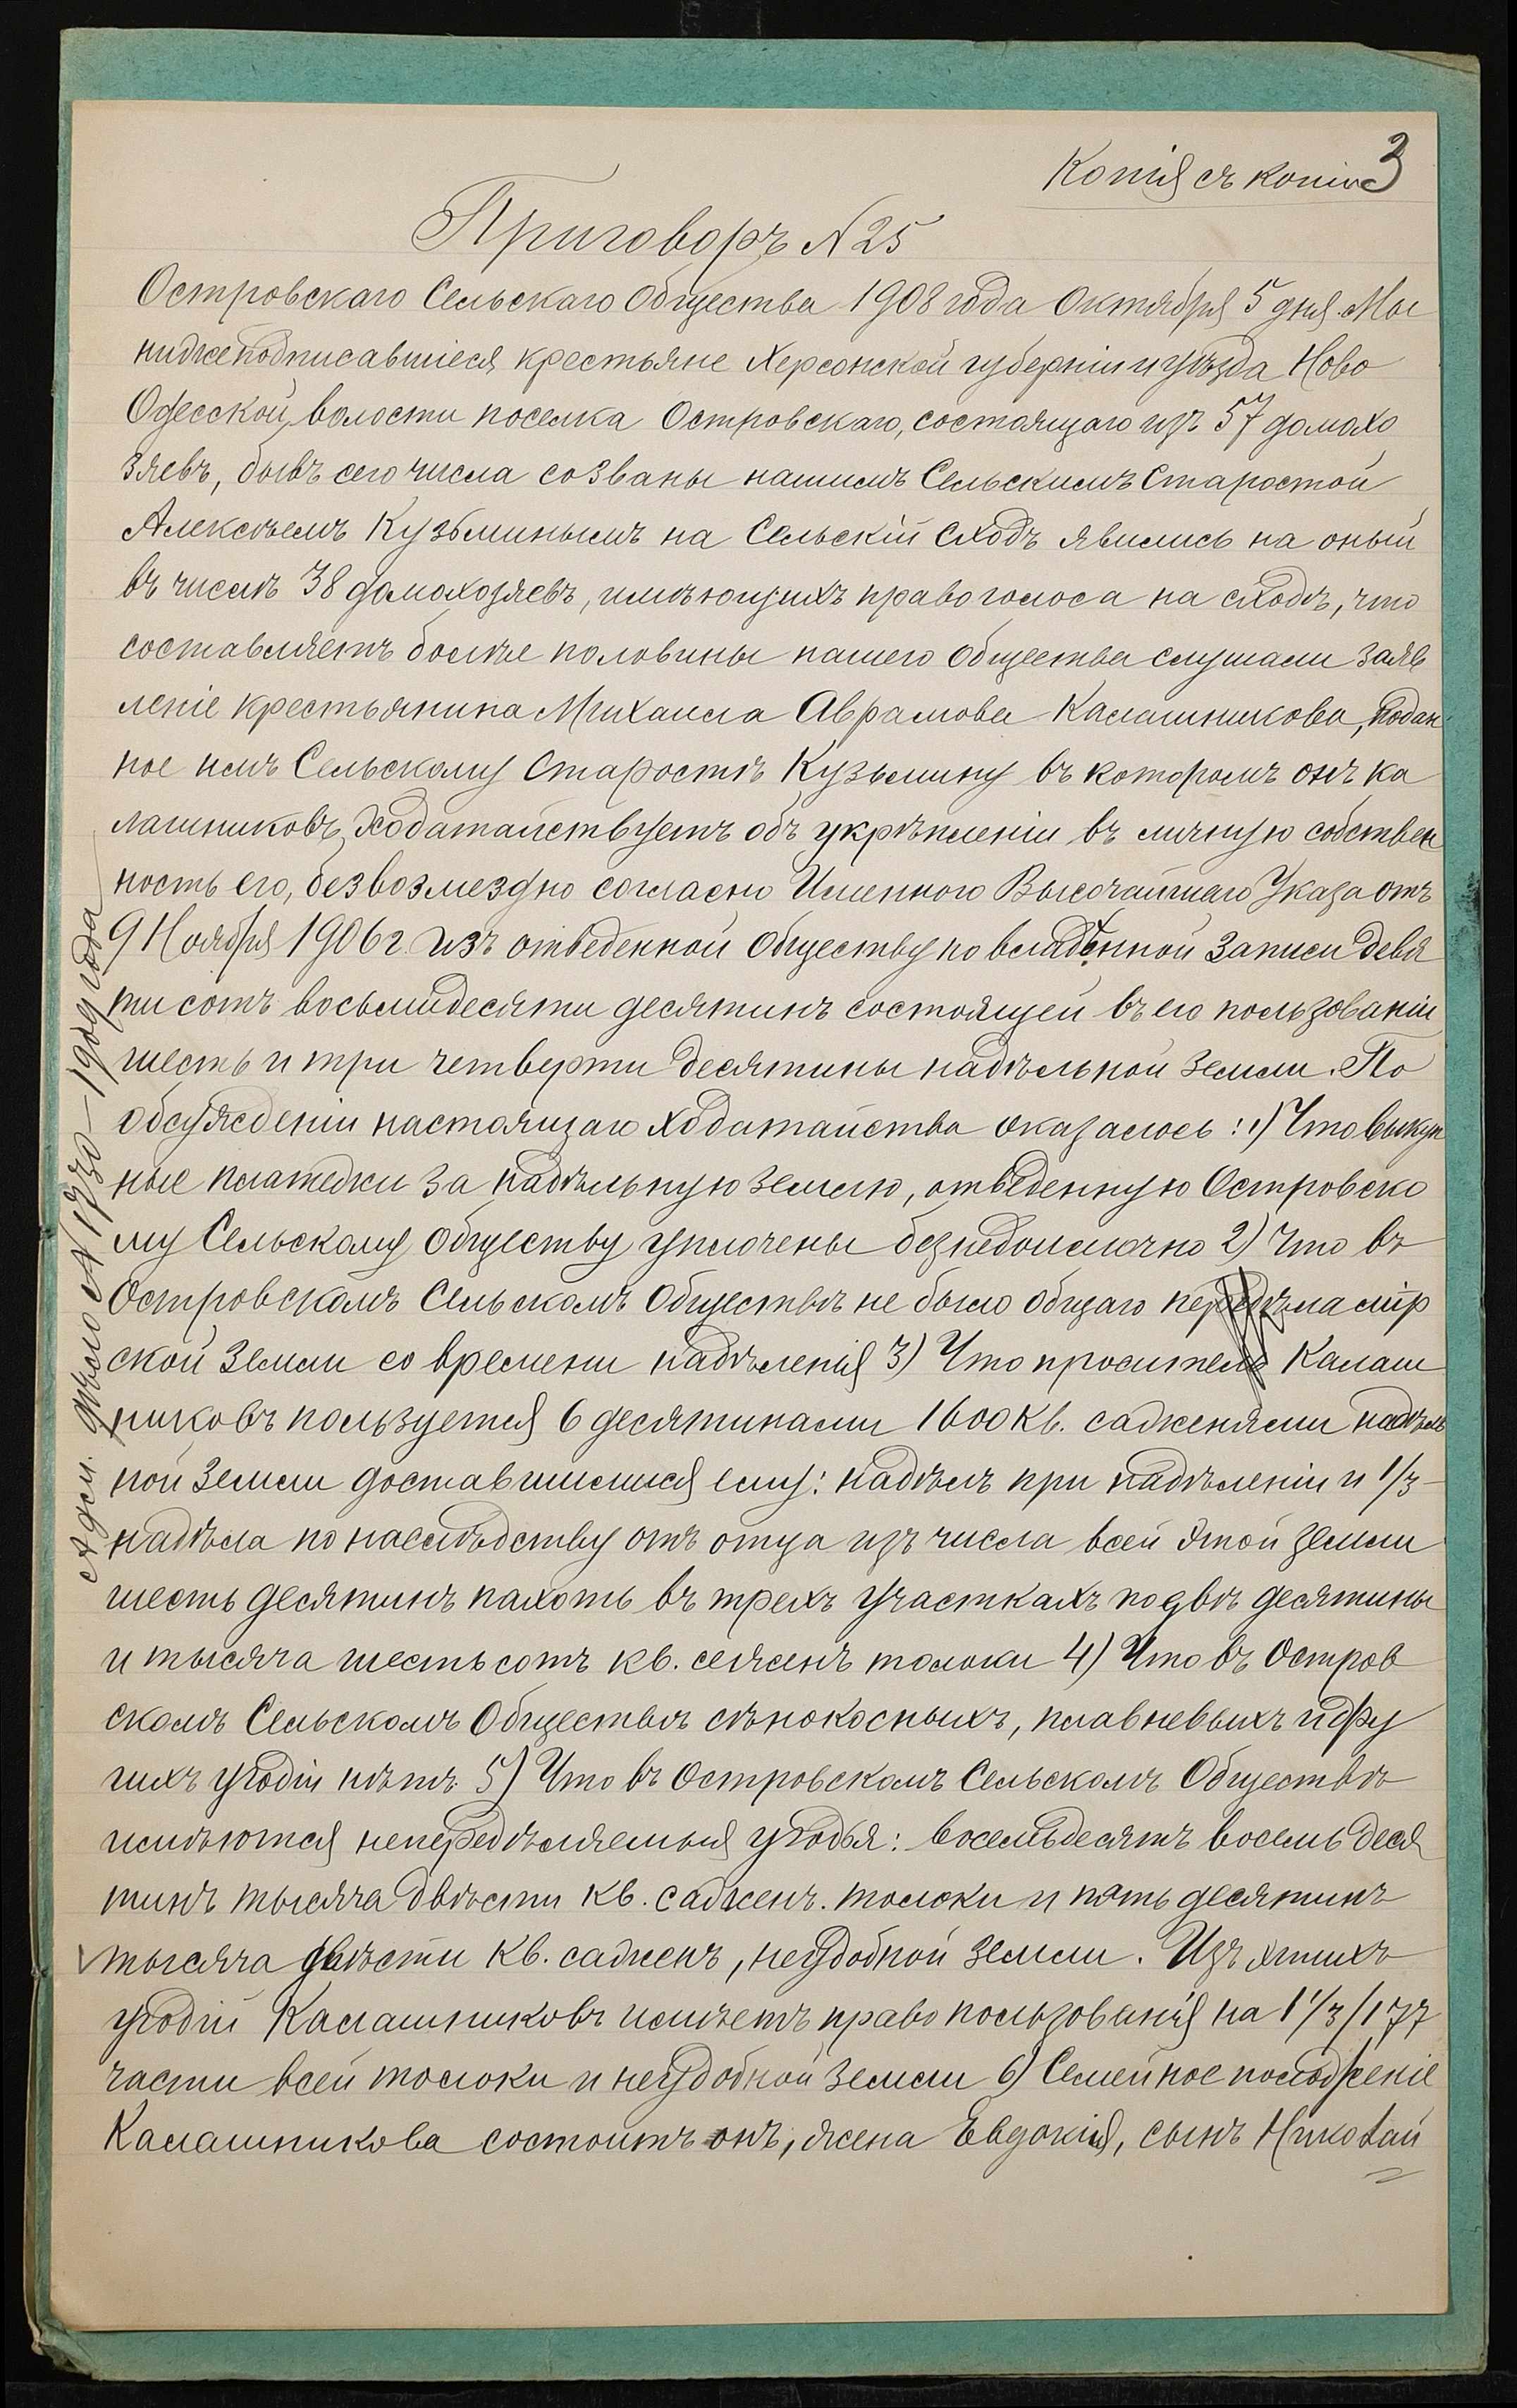 Копія съ копіи 3
Приговоръ N 25
Островскаго Сельскаго Общества 1908 года Октября 5 дня. Мы
нижеподписавшіеся крестьяне Херсонской губерніи и уѣзда Ново
Одесской волости поселка Островскаго, состоящаго изъ 57 домахо
зяевъ, бывъ сего числа созваны нашимъ Сельскимъ Старостой
Алексѣемъ Кузьминымъ на Сельскій Сходъ явились на оный
въ числѣ 38 домохозяевъ, имѣющихъ право голоса на сходѣ, что
составляетъ болѣе половины нашего Общества слушали заяв
леніе крестьянина Михаила Аврамова Калашникова, подан
ное имъ Сельскому Старостѣ Кузьмину въ которомъ онъ Ка
лашниковъ, ходатайствуетъ объ укрѣпленіи въ личную собствен
ность его, безвозмездно согласно Именного Высочайшаго Указа отъ
9 Ноября 1906 г. изъ отведенной Обществу по владѣнной Записи девя
ти сотъ восьмидесяти десятинъ состоящей въ его пользованіи
шесть и три четверти десятины надѣльной земли. По
обсужденіи настоящаго ходатайства оказалось: 1) Что выкуп
ные платежи за надѣльную землю, отведенную Островско
му Сельскому Обществу уплочены безнедоимочно 2) Что въ
Островскомъ Сельскомъ Обществѣ не было общаго передѣла мір
ской земли со времени надѣленія 3) Что проситель Калаш
никовъ пользуется 6 десятинами 1600 кв. саженями надѣль
ной земли доставшимися ему: надѣлъ при надѣленіи и 1/3
надѣла по наслѣдству отъ отца изъ числа всей этой земли
шесть десятинъ пахоть въ трехъ участкахъ по двѣ десятины
и тысяча шестьсотъ кв. сажень толоки 4) Что въ Остров
скомъ Сельскомъ Обществѣ сѣнокосныхъ, плавневыхъ и дру
гихъ угодій нѣтъ. 5) Что въ Островскомъ Сельскомъ Обществѣ
имѣются непередѣляемыя угодья: восемьдесятъ восемь деся
тинъ тысяча двѣсти кв. саженъ. толоки и пять десятинъ
тысяча двѣсти кв. саженъ, неудобной земли. Изъ этихъ
угодій Калашниковъ имѣетъ право пользованія на 1 1/3/177
части всей толоки и неудобной земли 6) Семейное положеніе
Калашникова состоитъ онъ, жена Евдокія, сынъ Николай
дѣло N 1730 - 190 года